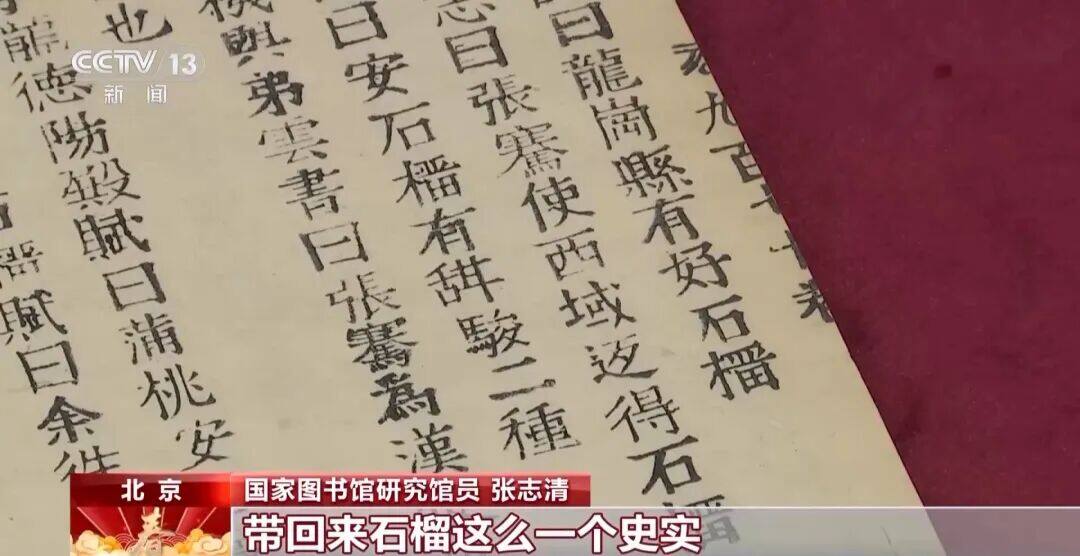 CCTV 13
新闻
九百七十卷
曰龍崗縣有好石橊
志曰張騫使西域返得石橊
曰安石橊有甜駿二種
機與弟雲書曰張騫為漢
也
龍德陽殿賦曰蒲桃安
橊賦曰余徃
北京
国家图书馆研究馆员 张志清
春
带回来石榴这么一个史实